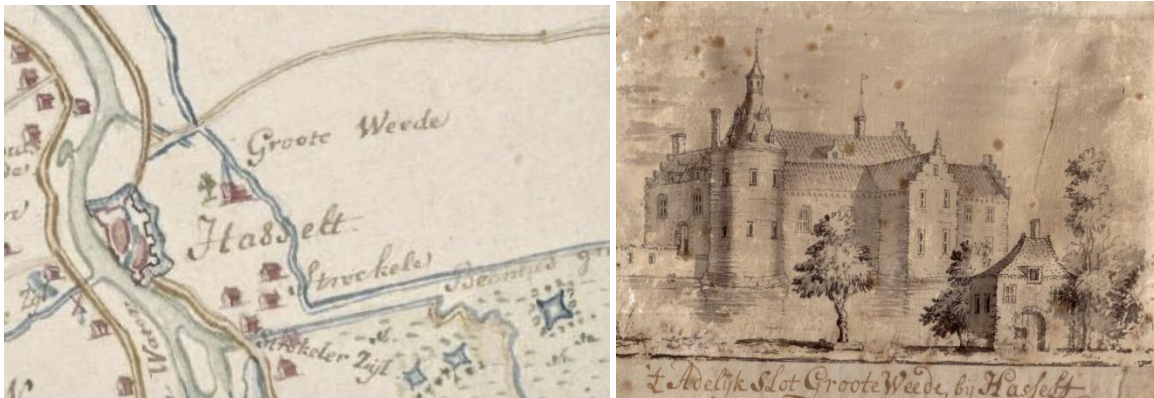 Groote Weede
Hasselt
Strockele
Strekeler Zijl
't Adelijk Slot Groote Weede, bij Hasselt